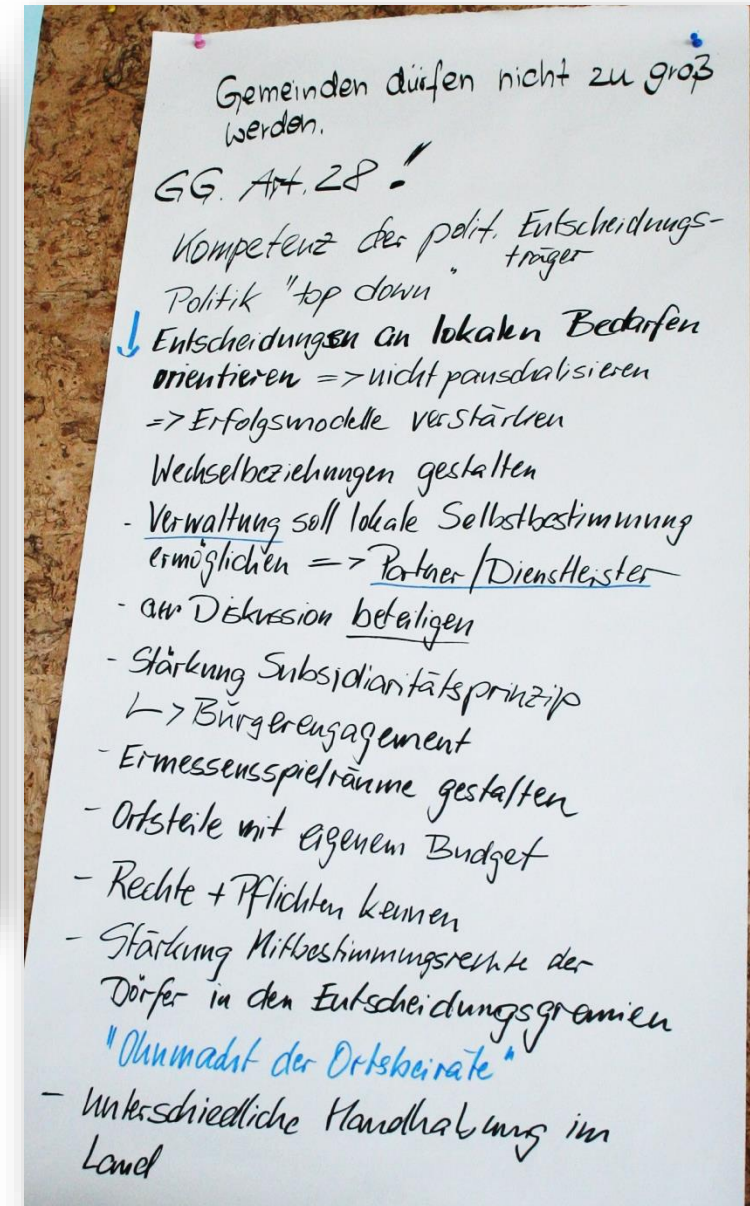 Gemeinden dürfen nicht zu groß
werden.
GG. Art. 28!
Kompetenz der polit. Entscheidungs-
träger
Politik "top down"
↓ Entscheidungen an lokalen Bedarfen
orientieren => nicht pauschalisieren
=> Erfolgsmodelle verstärken
Wechselbeziehungen gestalten
- Verwaltung soll lokale Selbstbestimmung
ermöglichen => Partner/Dienstleister
- an Diskussion beteiligen
- Stärkung Subsidiaritätsprinzip
↳ Bürgerengagement
- Ermessensspielräume gestalten
- Ortsteile mit eigenem Budget
- Rechte + Pflichten kennen
- Stärkung Mitbestimmungsrechte der
Dörfer in den Entscheidungsgremien
"Ohnmacht der Ortsbeiräte"
- unterschiedliche Handhabung im
Land